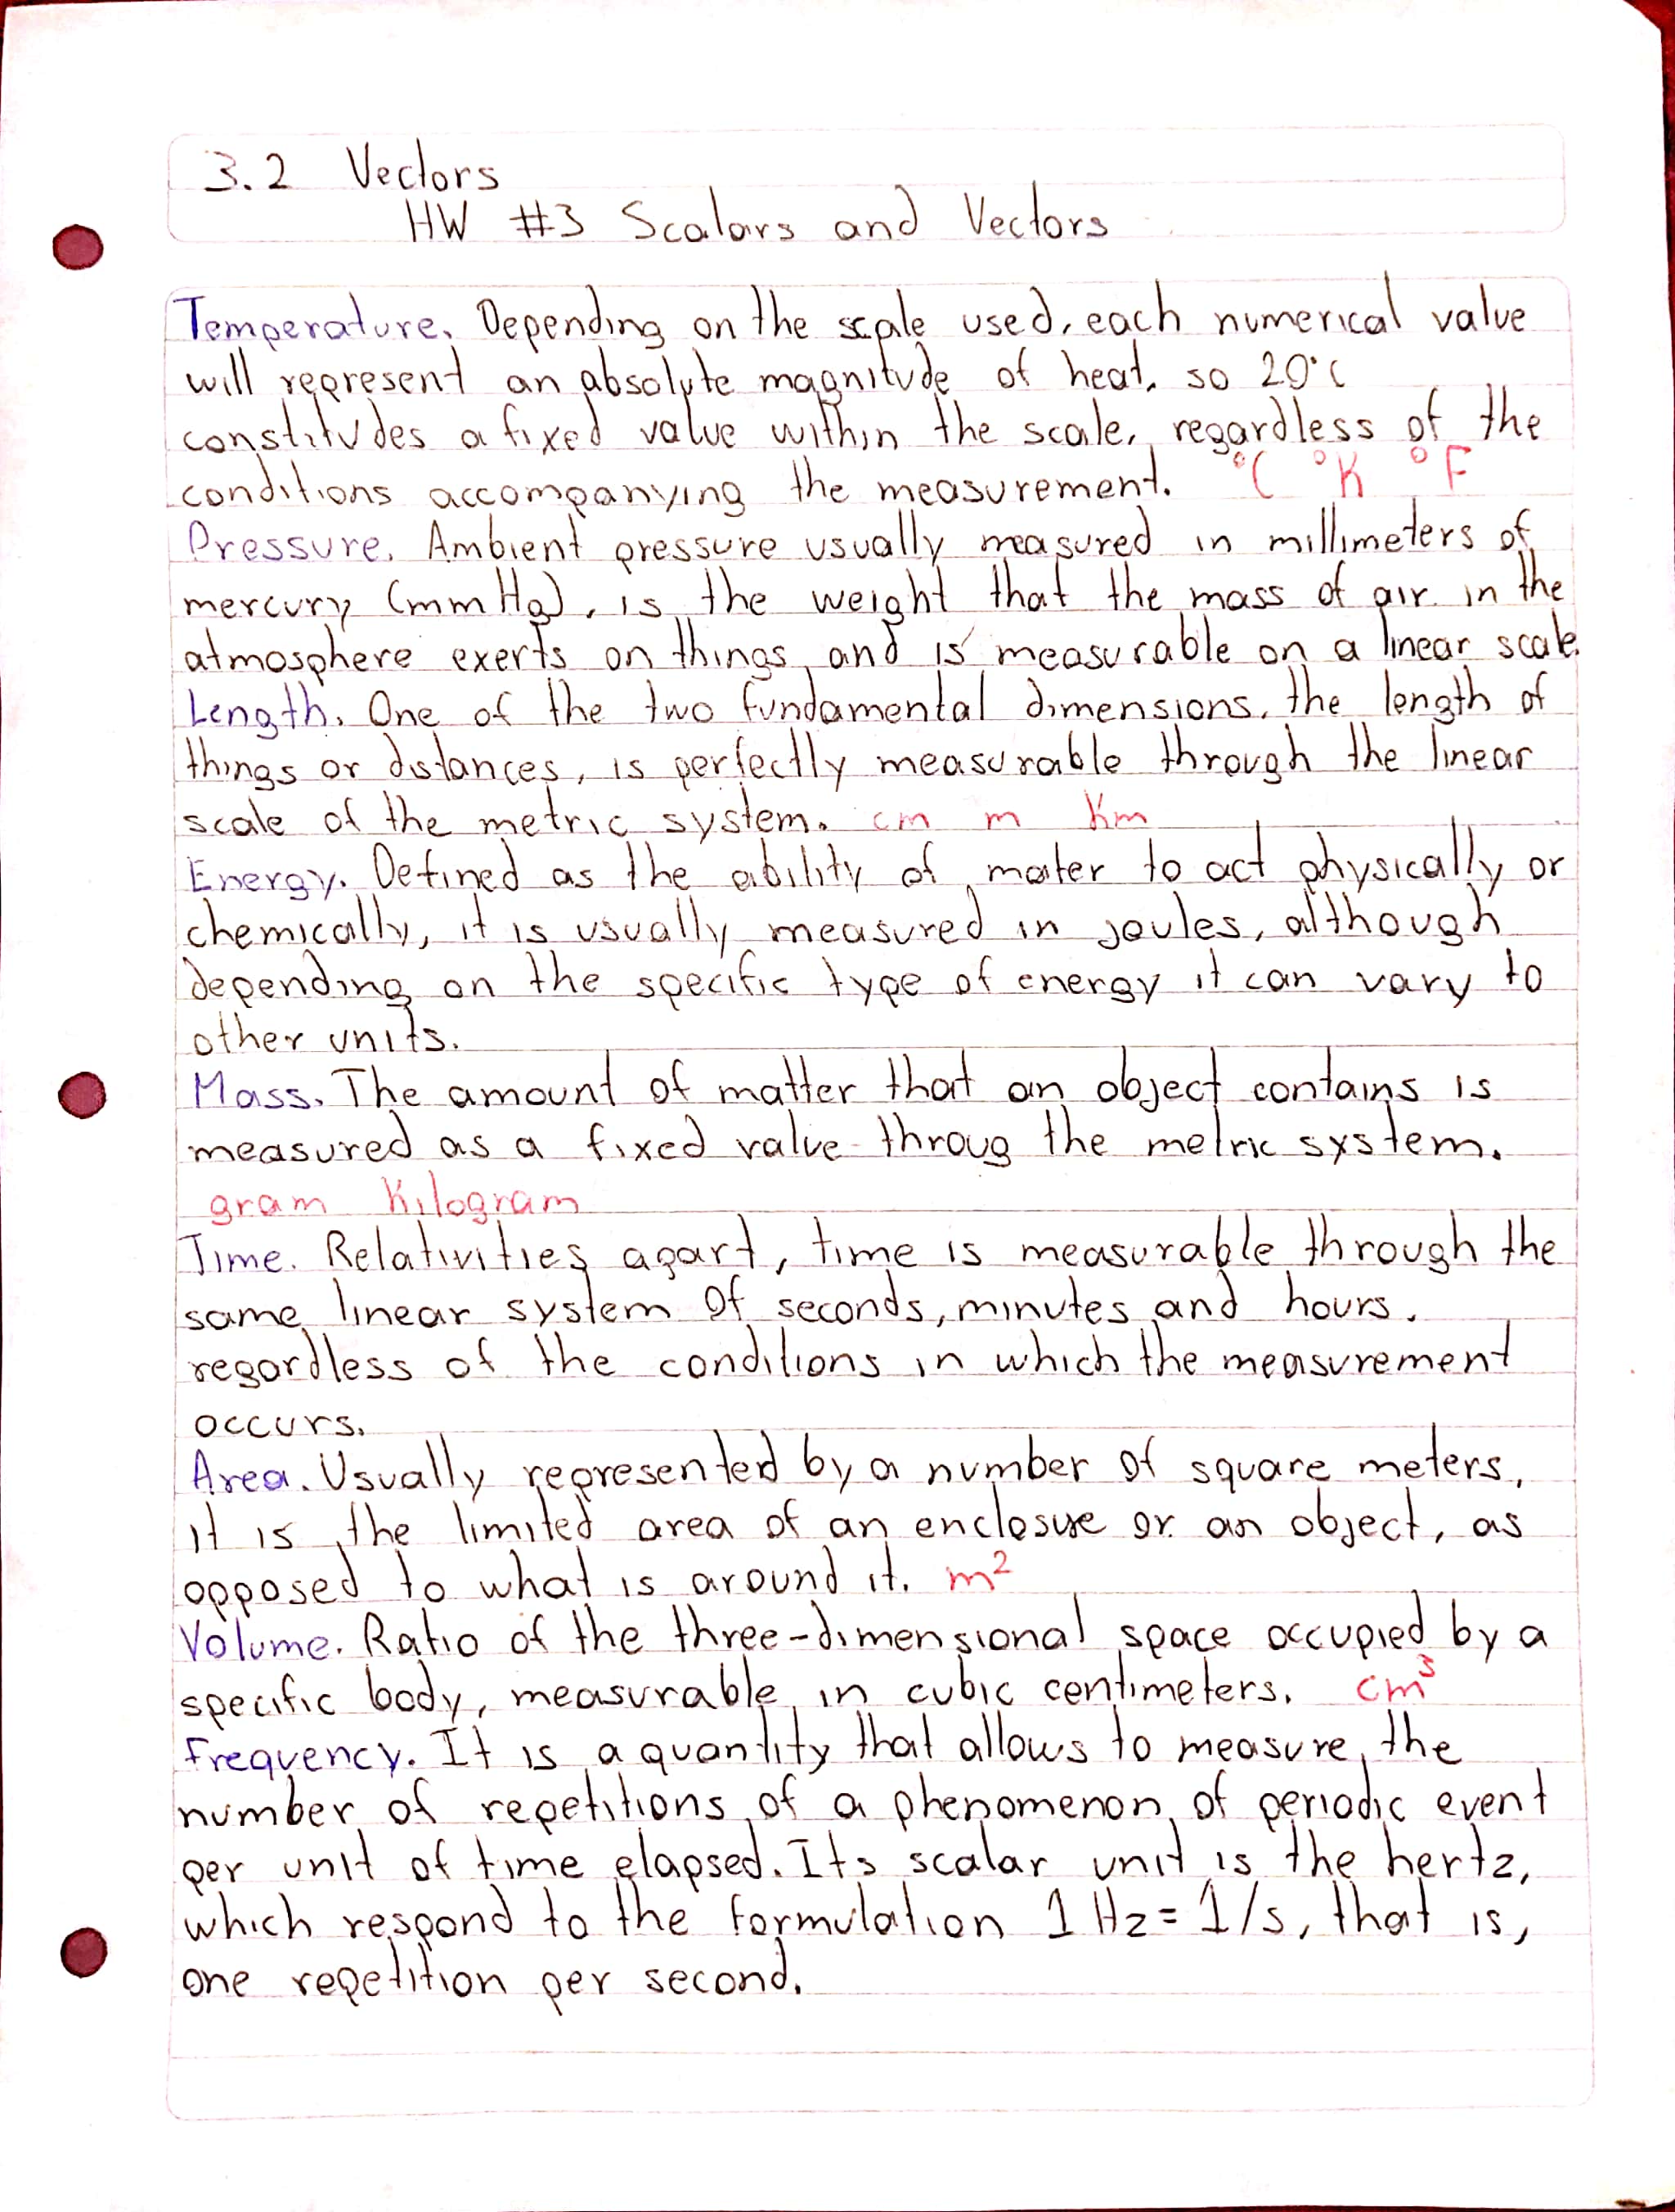 3.2 Vectors
HW #3 Scalars and Vectors
Temperature. Depending on the scale used, each numerical value
will represent an absolute magnitude of heat, so 20°C
constitudes a fixed value within the scale, regardless of the
conditions accompanying the measurement. °C °K °F
Pressure. Ambient pressure usually measured in millimeters of
mercury (mm Hg), is the weight that the mass of air in the
atmosphere exerts on things and is measurable on a linear scale.
Length. One of the two fundamental dimensions, the length of
things or distances, is perfectly measurable through the linear
scale of the metric system. cm m Km
Energy. Defined as the ability of mater to act physically or
chemically, it is usually measured in joules, although
depending on the specific type of energy it can vary to
other units.
Mass. The amount of matter that an object contains is
measured as a fixed value throug the metric system.
gram Kilogram
Time. Relativities apart, time is measurable through the
same linear system of seconds, minutes and hours.
regardless of the conditions in which the measurement
occurs.
Area. Usually represented by a number of square meters,
it is the limited area of an enclosure or an object, as
opposed to what is around it. m²
Volume. Ratio of the three-dimensional space occupied by a
specific body, measurable in cubic centimeters. cm³
Frequency. It is a quantity that allows to measure the
number of repetitions of a phenomenon of periodic event
per unit of time elapsed. Its scalar unit is the hertz,
which respond to the formulation 1 Hz = 1/s, that is,
one repetition per second.